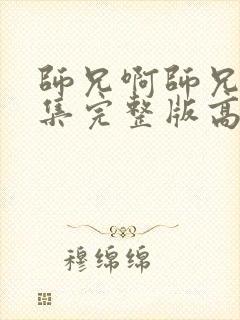 師兄啊師兄
集完整版高
穆绵绵